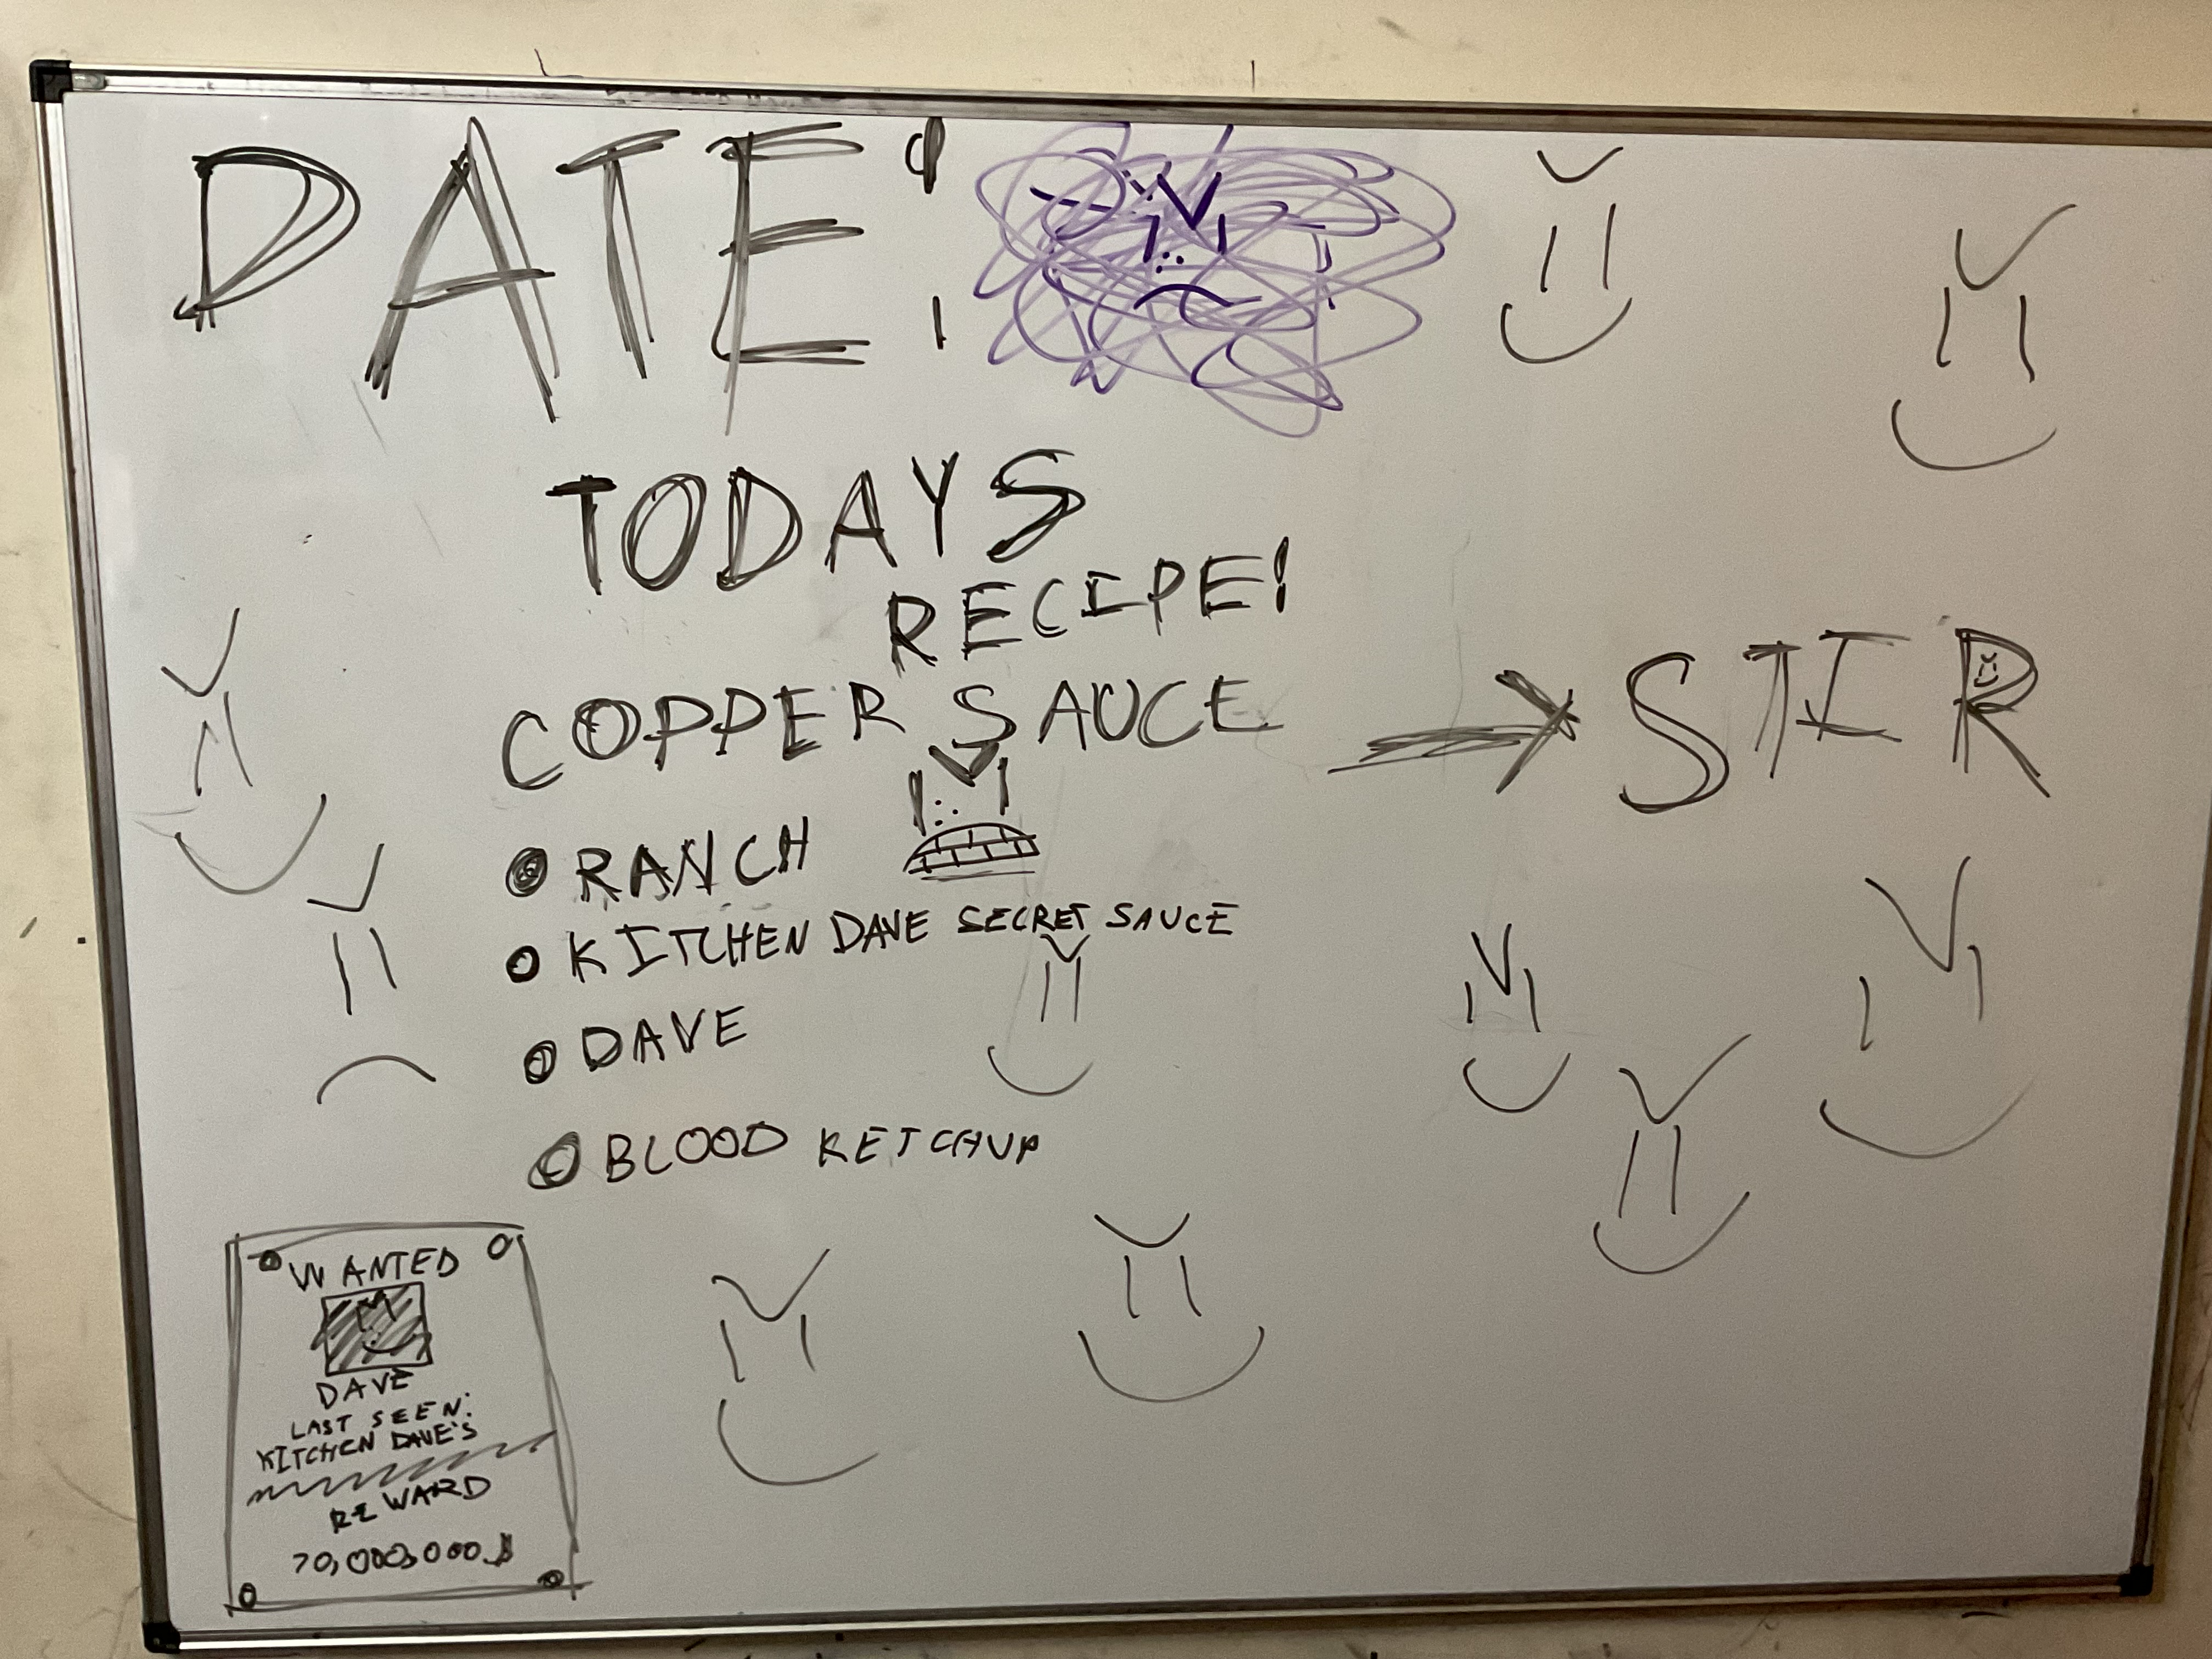 DATE:
TODAYS
RECIPE!
COPPER SAUCE → STIR
RANCH
KITCHEN DAVE SECRET SAUCE
DAVE
BLOOD KETCHUP
WANTED
DAVE
LAST SEEN:
KITCHEN DAVE'S
REWARD
70,000,000$